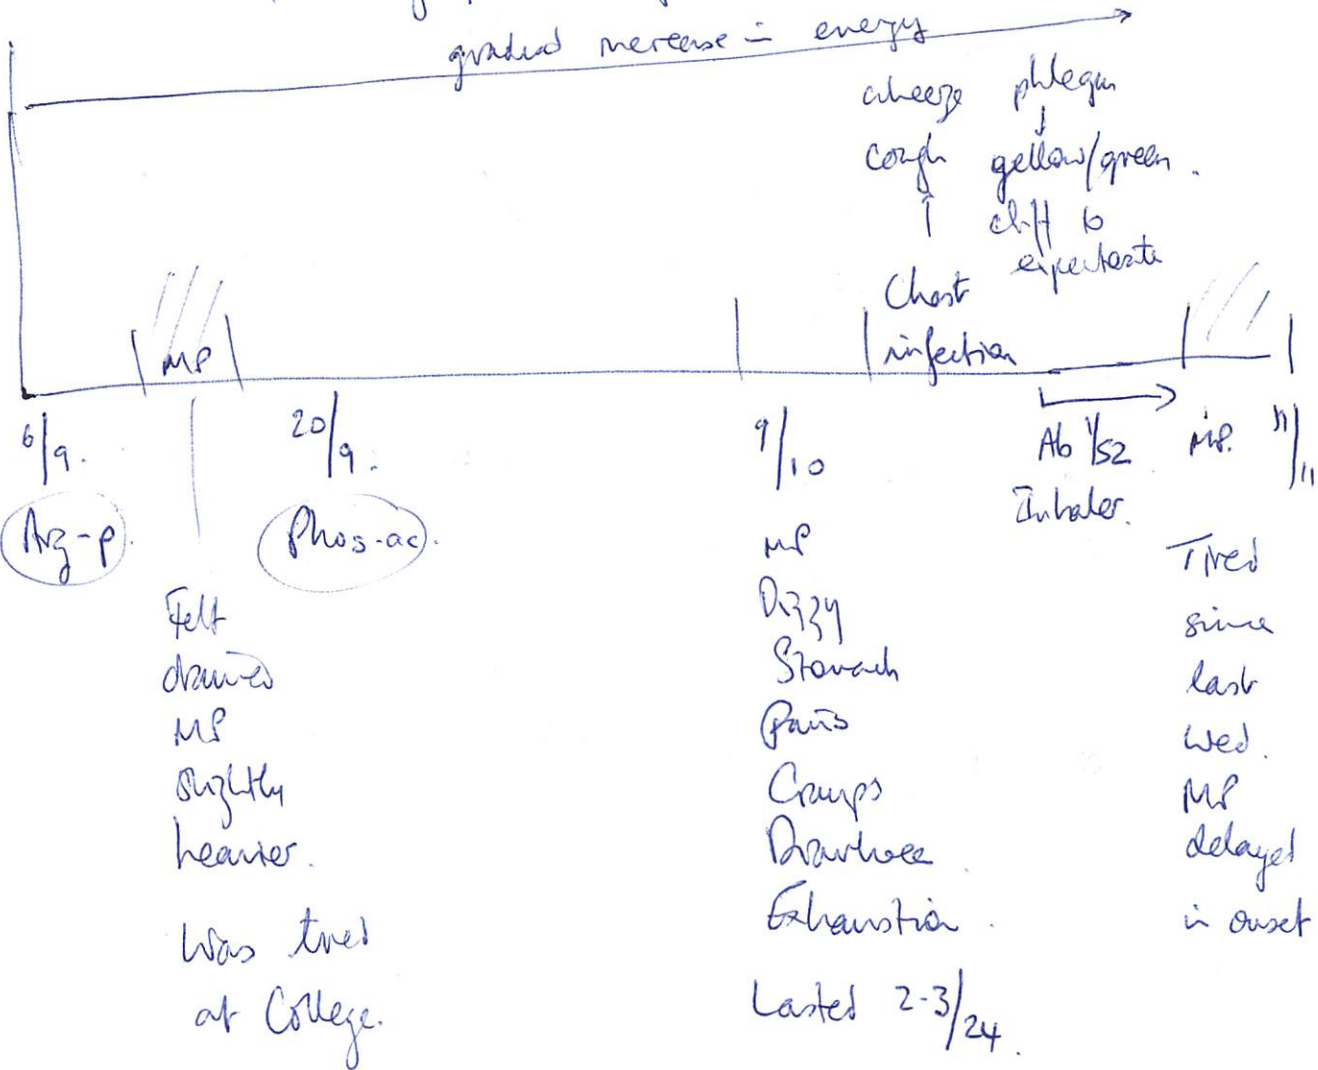 gradual increase in energy
wheeze phlegm
cough yellow/green.
diff to
expectorate
Chest
infection
MP
6/9.
20/9.
9/10
Ab 1/52
MP.
11/11
Inhaler.
Arg-p.
Phos-ac.
Felt
drained
MP
slightly
heavier.
Was tired
at College.
MP
Dizzy
Stomach
Pains
Cramps
Diarrhoea
Exhaustion.
Lasted 2-3/24.
Tired
since
last
Wed.
MP
delayed
in onset